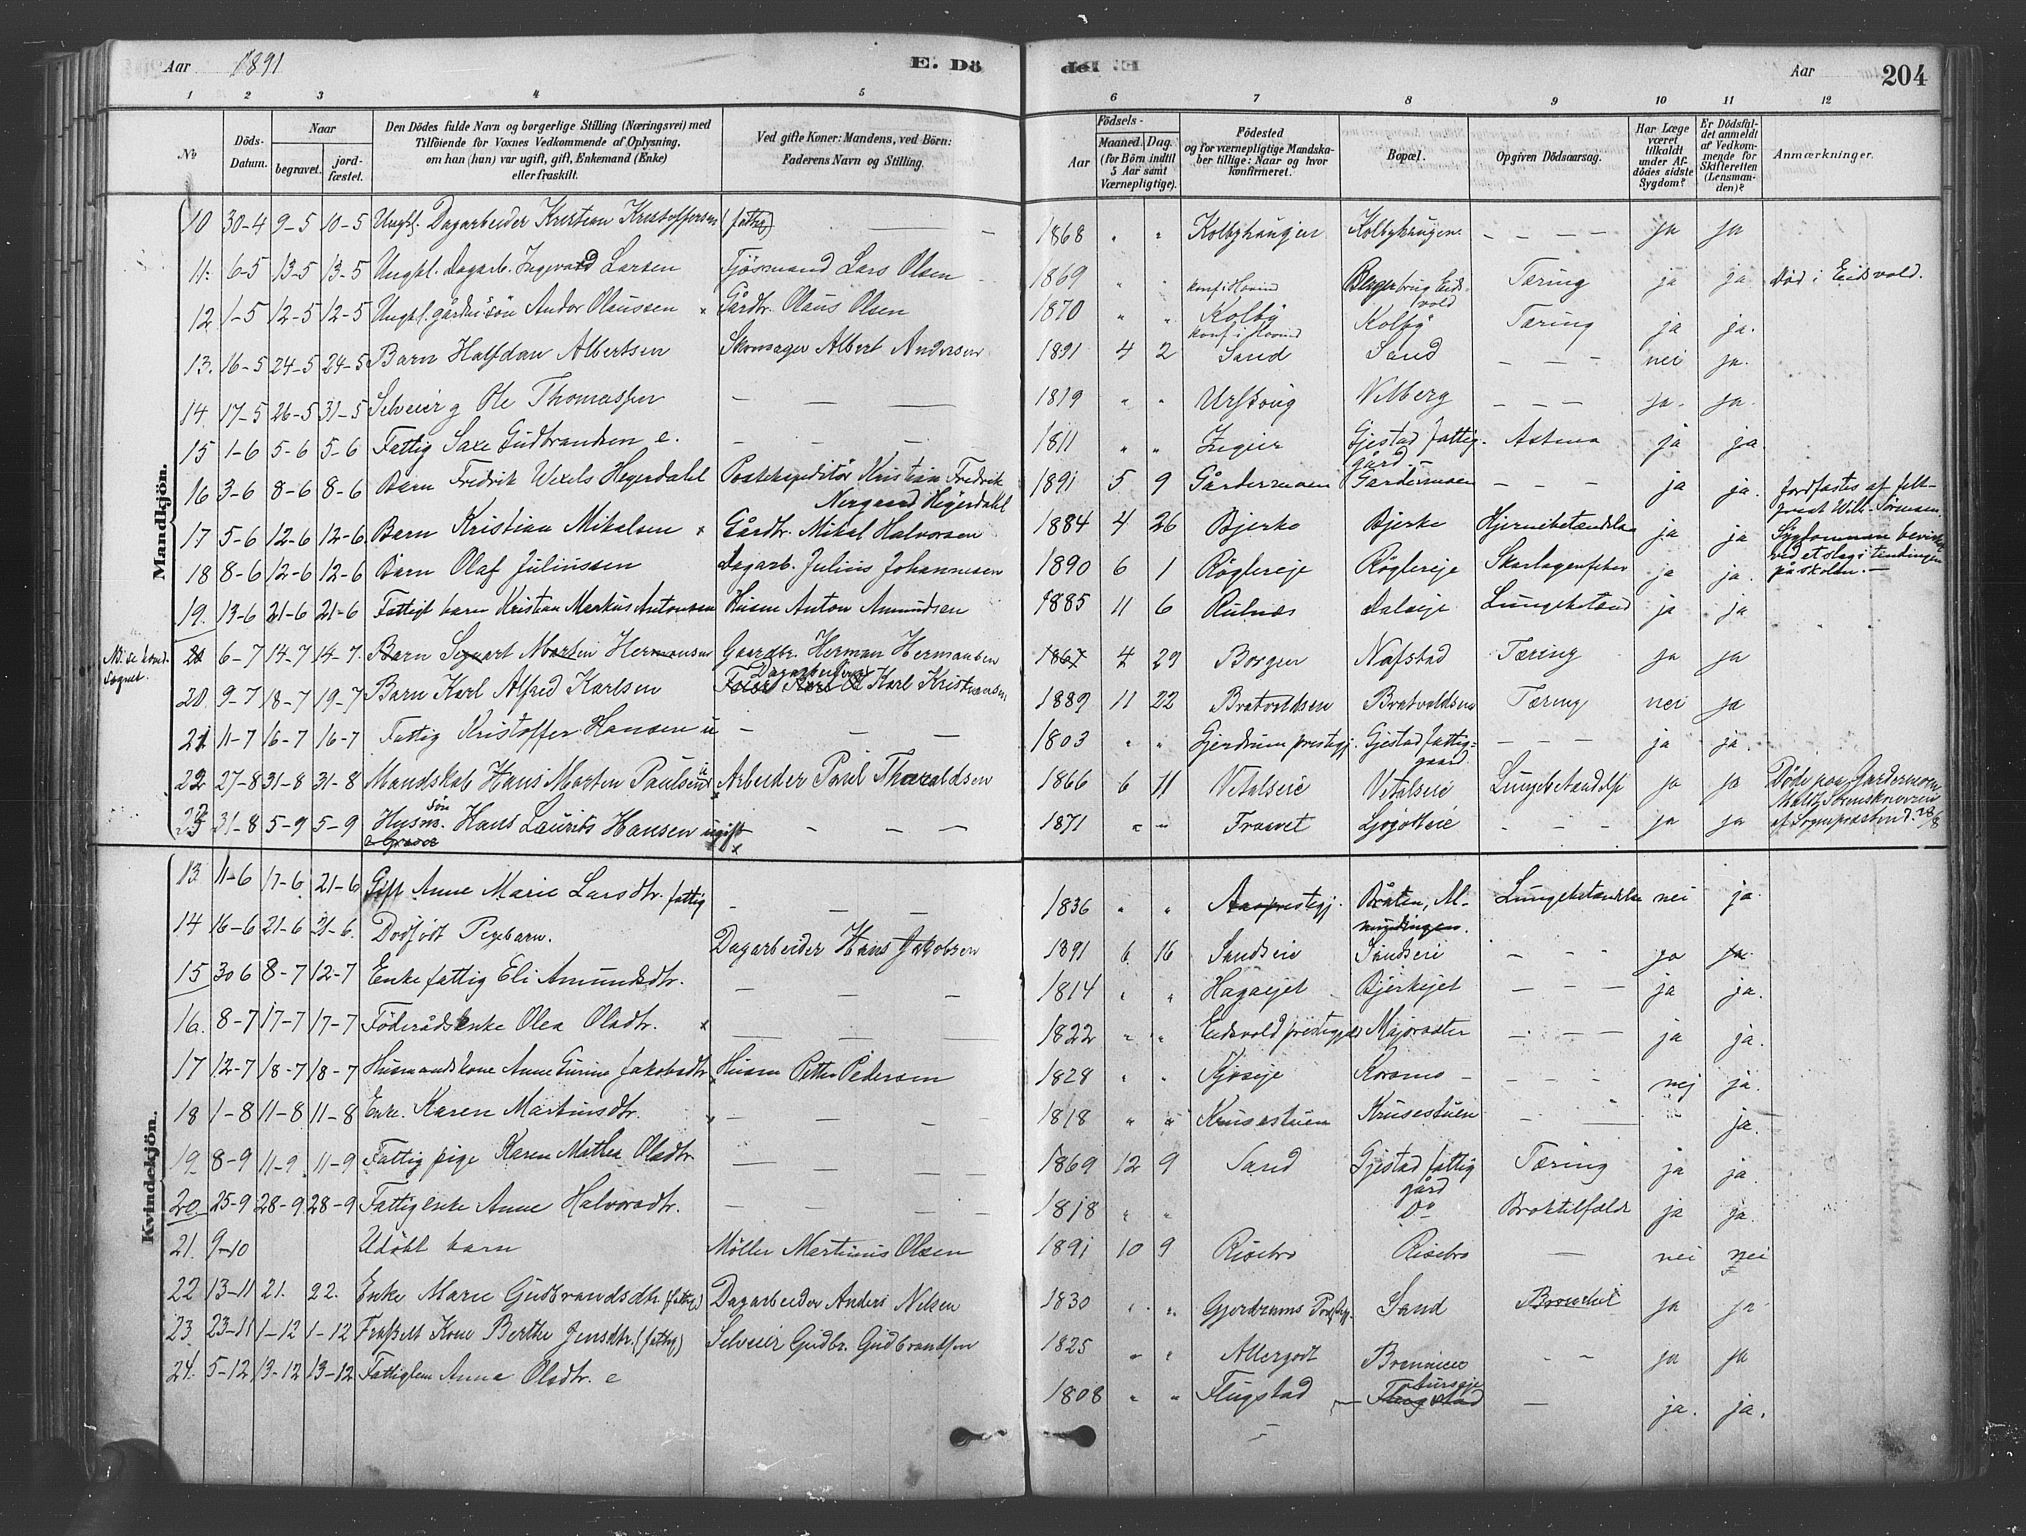 Aar 1891 E. Dö
de. Aar 204
1 2 3 4 5 6 7 8 9 10 11 12
No Döds-Datum. Naar begravet. jord-fæstet. Den Dödes fulde Navn og borgerlige Stilling (Næringsvei) med Tilföiende for Voxnes Vedkommende af Oplysning, om han (hun) var ugift, gift, Enkemand (Enke) eller fraskilt. Ved gifte Koner: Mandens, ved Börn: Faderens Navn og Stilling. Aar Födsels- Maaned. Dag. (for Börn indtil 5 Aar samt Værnepligtige). Födested og for værnepligtige Mandskaber tillige: Naar og hvor konfirmeret. Bopæl. Opgiven Dödsaarsag. Har Læge været tilkaldt under Afdödes sidste Sygdom? Er Dödsfaldet anmeldt af Vedkommende for Skifteretten (Lensmanden)? Anmærkninger.
Mandkjön.
10 30-4 9-5 10-5 Ungkl. Dagarbeider Kristian Kristoffersen (fattig) — 1868 " " Kolbyhaugen Kolbyhaugen — — — — ja ja
11. 6-5 13-5 13-5 Ungkl. Dagarb. Ingvard Larsen Tjösmand Lars Olsen 1869 " " konf i Hovind Eidsvold Tæring ja ja Död i Eidsvold.
12 1-5 12-5 12-5 Ungkl. gårdmssön Andor Olaussen Gårdbr. Olaus Olsen 1870 " " Kolby konf. i Hovind Kolby Tæring ja ja.
13. 16-5 24-5 24-5 Barn Halfdan Albertsen Skomager Albert Andersen 1891 4 2 Sand Sand — — — nei ja.
14. 17-5 26-5 31-5 Selveier g Ole Thomassen — — — 1819 " " Urskoug Vilberg — — — ja. ja.
15 1-6 5-6 5-6 Fattig Saxe Gudbrandsen e. — — — 1811 " " Ingier Gjestad fattiggård — Astma ja ja.
16 3-6 8-6 8-6 Barn Fredrik Wexels Hegerdahl Postekspeditör Kristian Fredrik Nergaard Hegerdahl 1891 5 9 Gårdermoen Gardermoen — — — ja ja. Jordfæstes af feltprest Wilh. Sörensen.
17 5-6 12-6 12-6 Barn Kristian Mikalsen Gårdbr. Mikal Halvorsen 1884 4 26 Bjerke Bjerke Hjernebetændelse ja ja Sygdommen bevirket ved et slag i tindingen på skolen. —
18 8-6 12-6 12-6 Barn Olaf Juliussen Dagarb. Julius Johannesen 1890 6 1 Röglereje Röglereje Skarlagensfeber ja ja.
19. 13-6 21-6 21-6 Fattigt barn Kristian Markus Antonsen Husm Anton Amundsen 1885 11 6 Rulnæs Daleje Lungebetænd ja ja
6-7 14-7 14-7. Barn Sigvart Martin Hermansen Gaardbr. Herman Hermansen 1867 4 29 Borgen Nafstad Tæring ja ja
20. 9-7 18-7 19-7 Barn Karl Alfred Karlsen Dagarbeider Karl Kristiansen 1889 11 22 Bratvoldseie Bratvoldseie Tæring nei ja
21 11-7 16-7 16-7 Fattig Kristoffer Hansen u — — — 1803 " " Gjerdrum prestegj. Gjestad fattiggaard — — — ja ja.
22 27-8 31-8 31-8 Mandskab Hans Morten Paulsen u Arbeider Povel Tharaldsen 1866 6 11 Vetalseie Vetalseie Lungebetændelse ja ja Döde paa Gardermoen
23 31-8 5-9 5-9 Husms. sön Hans Laurits Hansen ugift — — — 1871 " " Fraavet — — — ja ja af Sognepræsten d. 28/8
Kvindekjön.
13 11-6 17-6 21-6 Gift Anne Marie Larsdtr. fattig — — — 1836 " " Aasprestegj. Bråten, Almindingen. Lungebetændelse nei ja.
14 16-6 21-6 21-6. Dödfödt Pigebarn. Dagarbeider Hans Jakobsen 1891 6 16 Sandseie Sandseie — — — ja ja.
15 30 6 8-7 12-7 Enke fattig Eli Amundsdtr. — — — 1814 " " Hagaejet Bjerkejet — — — ja ja.
16. 8-7 17-7 17-7 Föderådsenke Olea Olsdtr. — — — 1822 " " Eidsvold prestegjeld Majorsæter — — — ja ja.
17 12-7 18-7 18-7 Husmandskone Anne Gurine Jakobsdtr Husm Petter Pedersen 1828 " " Kjoseje Korsmo — nej ja.
18 1-8 11-8 11-8 Enke. Karen Martinsdtr. — — — 1818 " " Krusestuen Krusestuen — — ja.
19. 8-9 11-9 11-9 Fattig pige Karen Mathea Olsdtr — — — 1869 12 9 Sand Gjestad fattiggård Tæring ja ja.
20. 25-9 28-9 28-9 Fattig enke Anne Halvorsdtr. — — — 1818 " " Do Broktilfælde ja ja.
21. 9-10 Udöbt barn Möller Martinius Olsen 1891 10 9 Risebro Risebro — nei nei
22 13-11 21. 22. Enke Marie Gudbrandsdtr. (fattig) Dagarbeider Anders Nilsen 1830 " " Gjerdrums Prstgj. Sand Bronchit ja ja
23. 23-11 1-12 1-12 Fraskilt Kone Berthe Jensdtr. (fattig) Selveier Gudbr. Gudbrandsen 1825 " " Allergodt — — ja ja
24. 5-12 13-12 13-12 Fattiglem Anna Olsdtr. e 1808 " " Flugstad Flugstad — ja. ja.